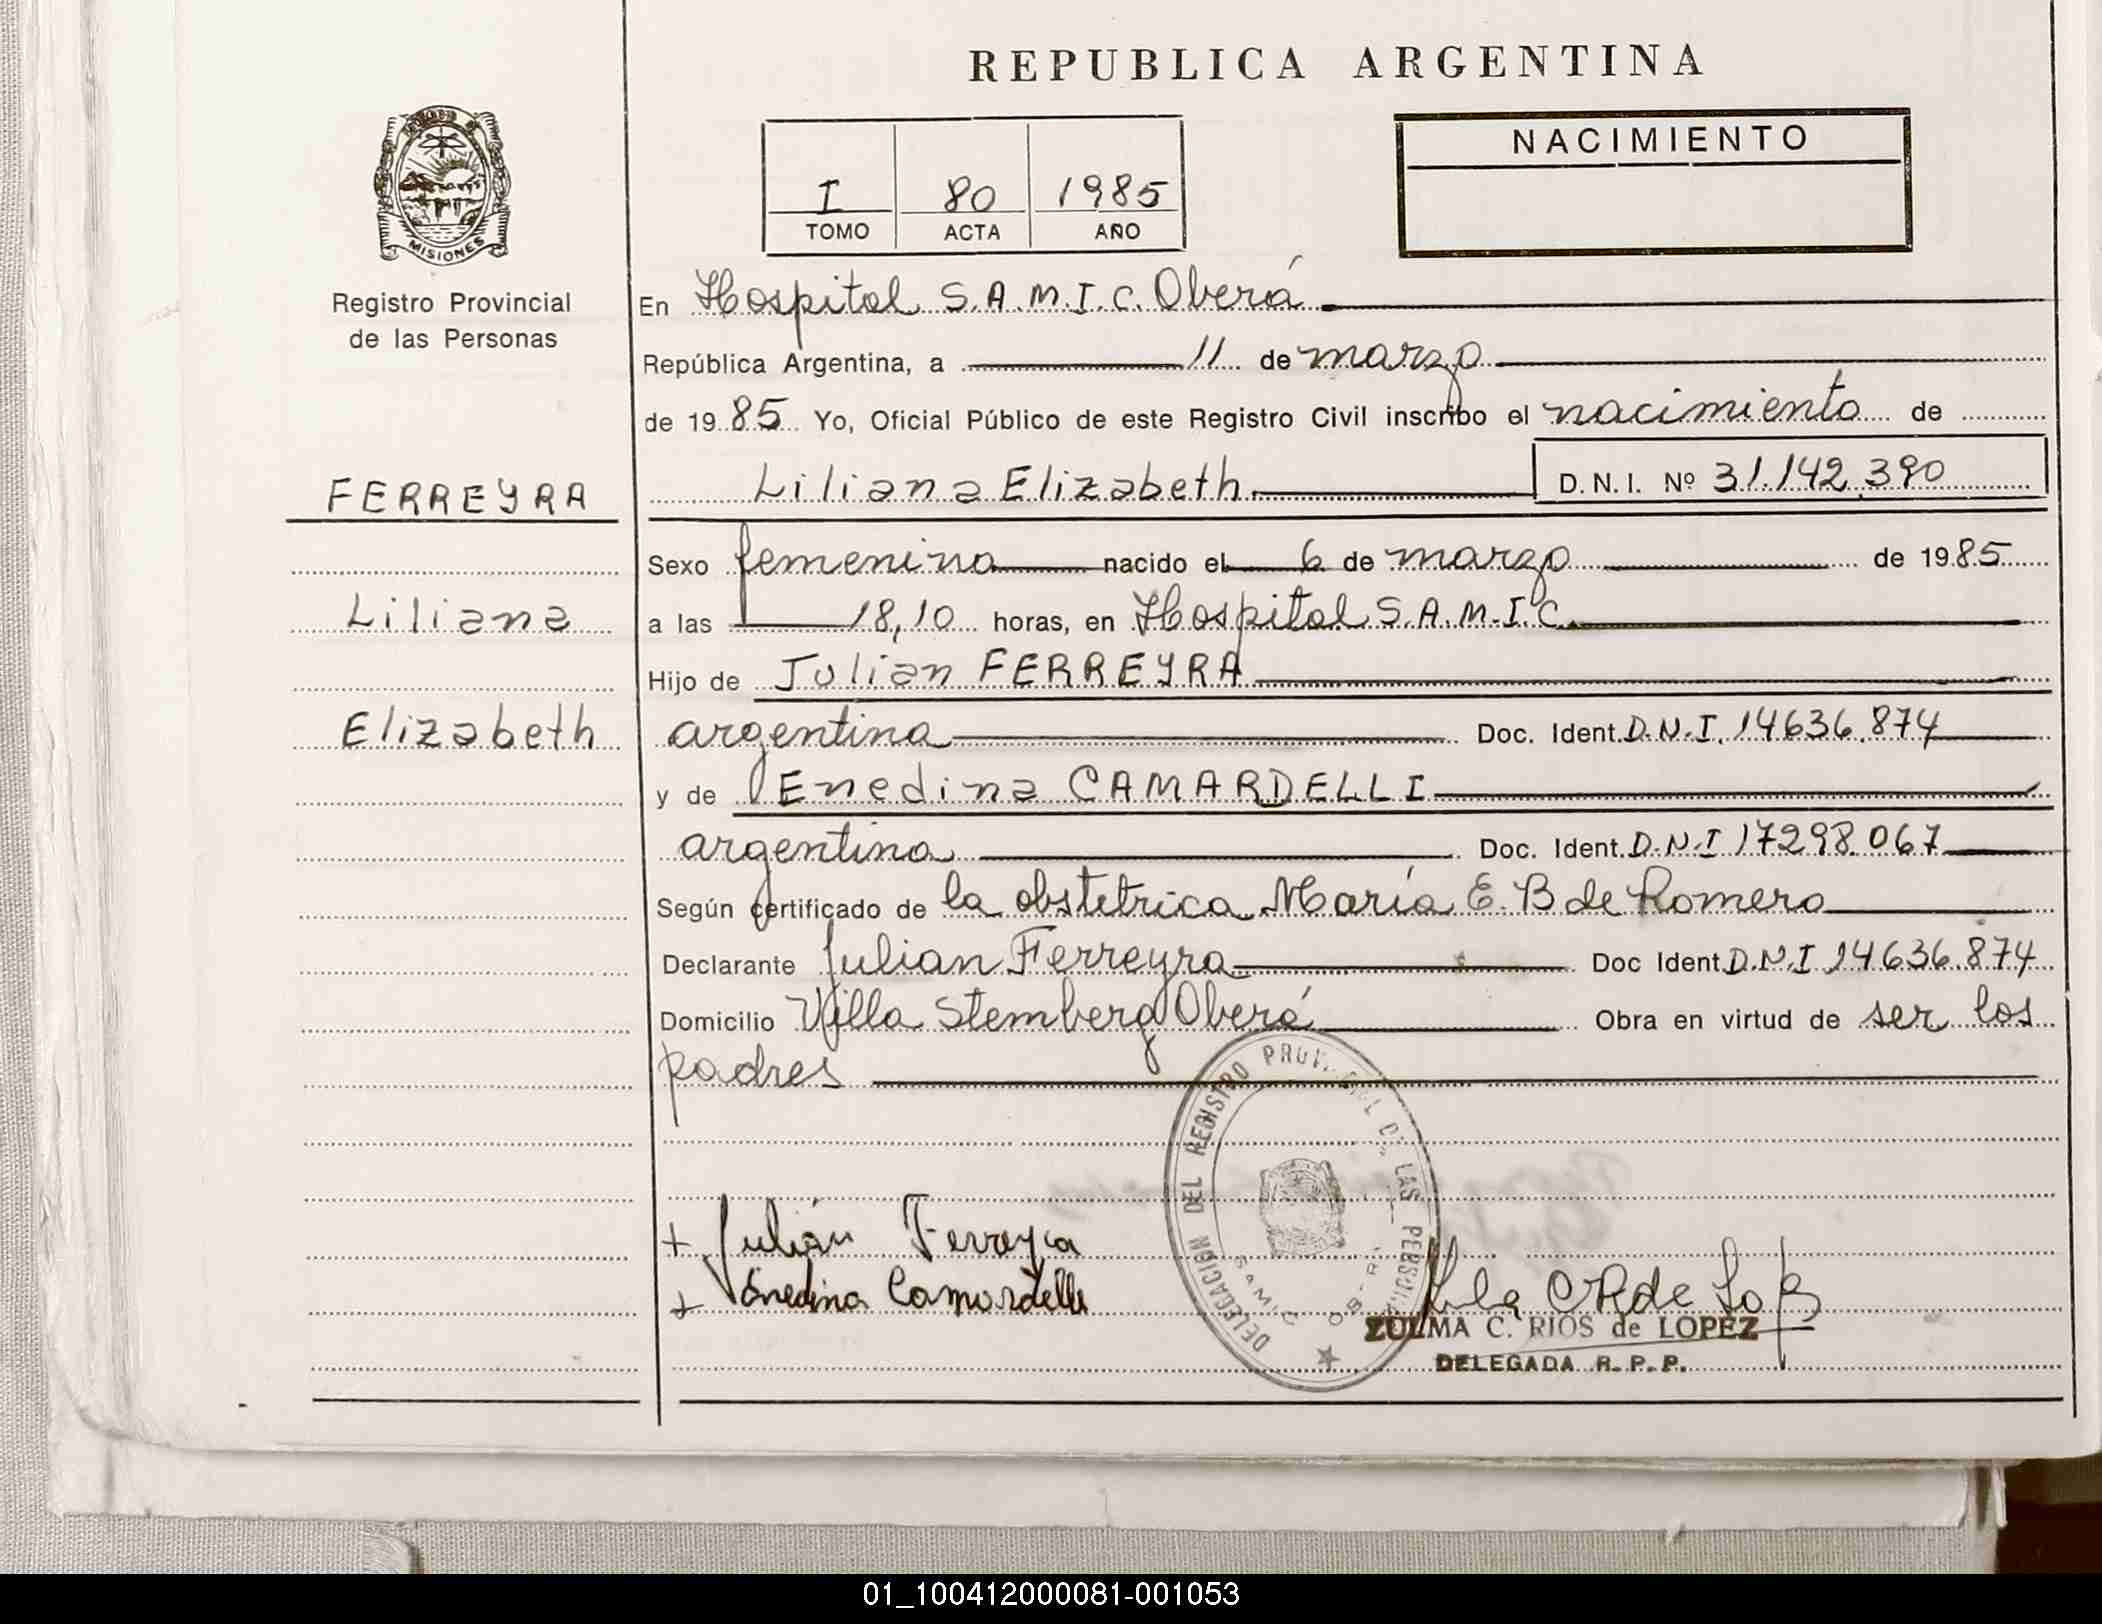 REPUBLICA ARGENTINA
MISIONES
Registro Provincial
de las Personas
I 80 1985
TOMO ACTA AÑO
NACIMIENTO
En Hospital S.A.M.I.C. Oberá
República Argentina, a 11 de marzo
de 1985 Yo, Oficial Público de este Registro Civil inscribo el nacimiento de
FERREYRA
Liliana Elizabeth D.N.I. Nº 31.142.390
Sexo femenino nacido el 6 de marzo de 1985
Liliana
a las 18,10 horas, en Hospital S.A.M.I.C.
Hijo de Julian FERREYRA
Elizabeth
argentina Doc. Ident. D.N.I. 14636.874
y de Enedina CAMARDELLI
argentina Doc. Ident. D.N.I 17298.067
Según certificado de la obstetrica María E. B de Romero
Declarante Julian Ferreyra Doc Ident. D.N.I 14636.874
Domicilio Villa Stemberg Oberá Obra en virtud de ser los
padres
DELEGACION DEL REGISTRO PROVINCIAL DE LAS PERSONAS
SAMIC
Julián Ferreyra
Enedina Camardelli
ZULMA C. RIOS de LOPEZ
DELEGADA R. P. P.
01_100412000081-001053